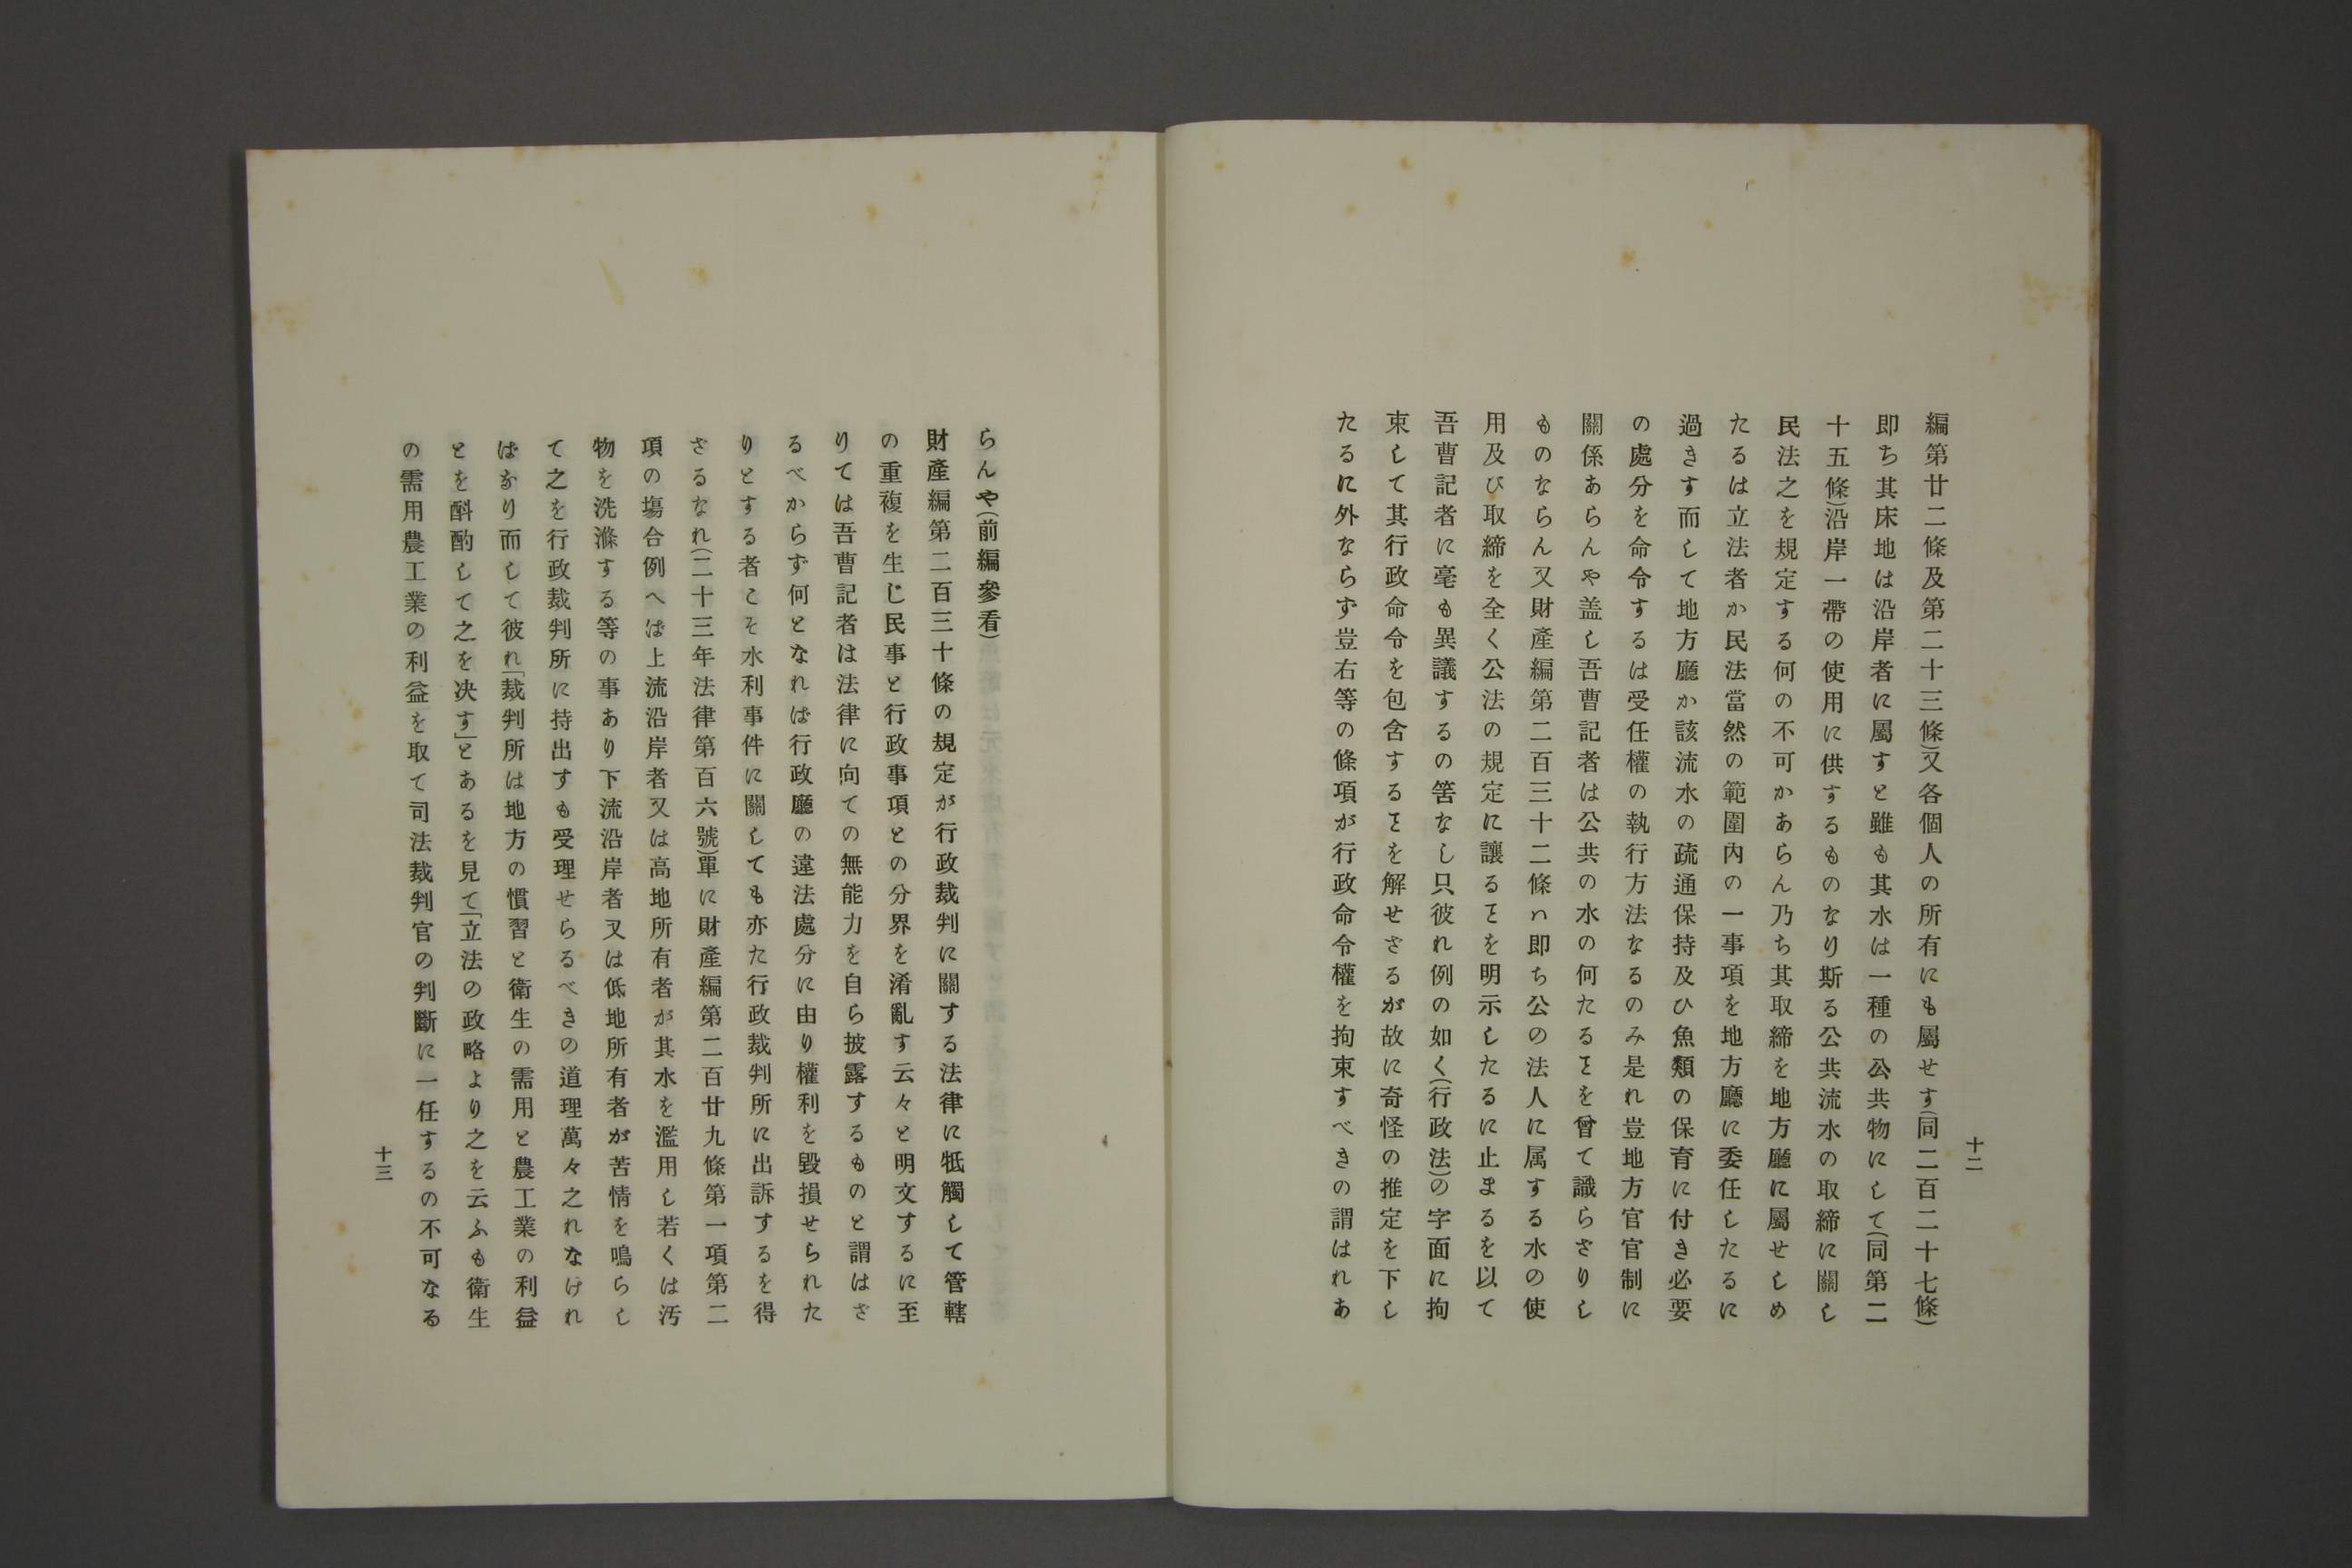 十二
編第廿二條及第二十三條)又各個人の所有にも屬せす(同二百二十七條)
即ち其床地は沿岸者に屬すと雖も其水は一種の公共物にして(同第二
十五條)沿岸一帶の使用に供するものなり斯る公共流水の取締に關し
民法之を規定する何の不可かあらん乃ち其取締を地方廳に屬せしめ
たるは立法者か民法當然の範圍内の一事項を地方廳に委任したるに
過きす而して地方廳か該流水の疏通保持及ひ魚類の保育に付き必要
の處分を命令するは受任權の執行方法なるのみ是れ豈地方官官制に
關係あらんや盖し吾曹記者は公共の水の何たるヿを曾て識らさりし
ものならん又財產編第二百三十二條ハ即ち公の法人に属する水の使
用及び取締を全く公法の規定に讓るヿを明示したるに止まるを以て
吾曹記者に毫も異議するの筈なし只彼れ例の如く(行政法)の字面に拘
束して其行政命令を包含するヿを解せさるが故に奇怪の推定を下し
たるに外ならず豈右等の條項が行政命令權を拘束すべきの謂はれあ
らんや(前編參看)
財產編第二百三十條の規定が行政裁判に關する法律に牴觸して管轄
の重複を生じ民事と行政事項との分界を淆亂す云々と明文するに至
りては吾曹記者は法律に向ての無能力を自ら披露するものと謂はさ
るべからず何となれば行政廳の違法處分に由り權利を毀損せられた
りとする者こそ水利事件に關しても亦た行政裁判所に出訴するを得
さるなれ(二十三年法律第百六號)單に財產編第二百廿九條第一項第二
項の塲合例へば上流沿岸者又は高地所有者が其水を濫用し若くは汚
物を洗滌する等の事あり下流沿岸者又は低地所有者が苦情を鳴らし
て之を行政裁判所に持出すも受理せらるべきの道理萬々之れなけれ
ばなり而して彼れ「裁判所は地方の慣習と衛生の需用と農工業の利益
とを斟酌して之を决す」とあるを見て「立法の政略より之を云ふも衛生
の需用農工業の利益を取て司法裁判官の判斷に一任するの不可なる
十三